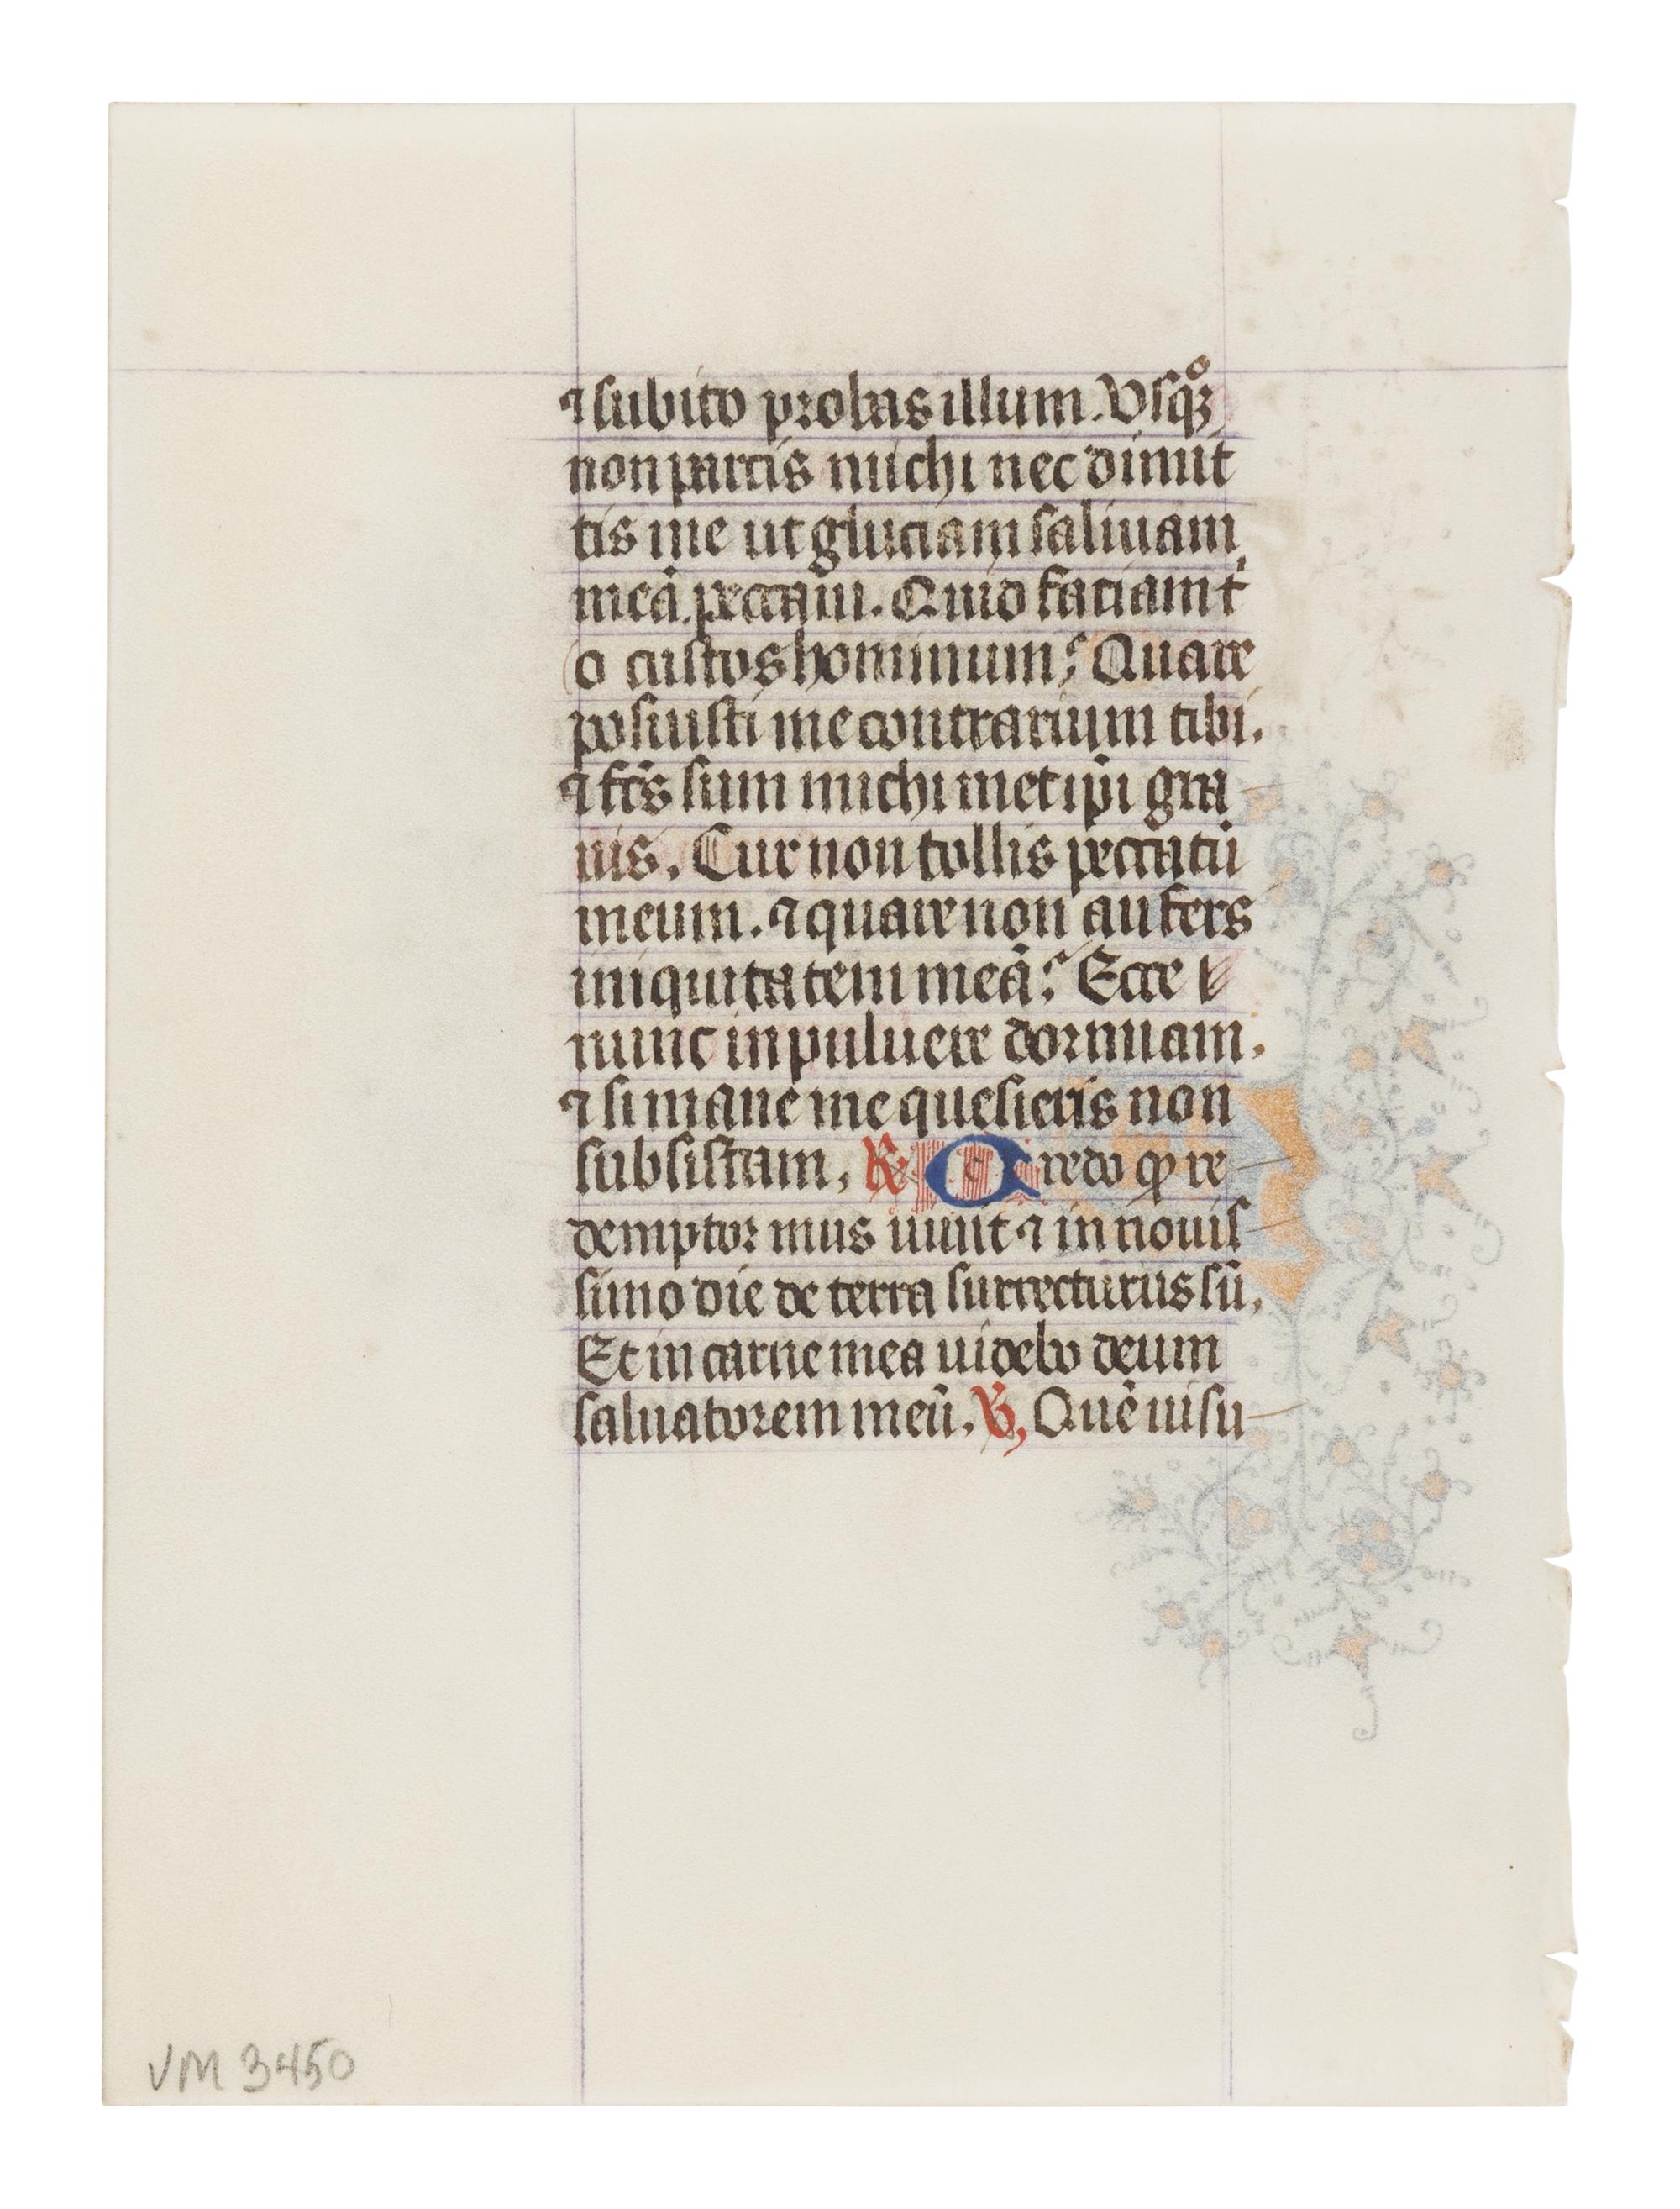 ⁊ subito probas illum. Vsq̨ꝫ
non parcis michi nec dimit
tis me ut gluciam saliuam
meā. peccaui. Quid faciam t̉
o custos hominum? Quare
posuisti me contrarium tibi.
⁊ fc̄s sum michimet ip̄i gra
uis. Cur non tollis peccatū
meum. ⁊ quare non aufers
iniquitatem meā? Ecce
nunc in puluere dormiam.
⁊ si mane me quesieris non
subsistam. ℟ Credo ꝙ re
demptor mus uiuit ⁊ in nouis
simo die de terra surrecturus sū.
Et in carne mea uidebo deum
saluatorem meū. ℣ Quē uisu
VM 3450